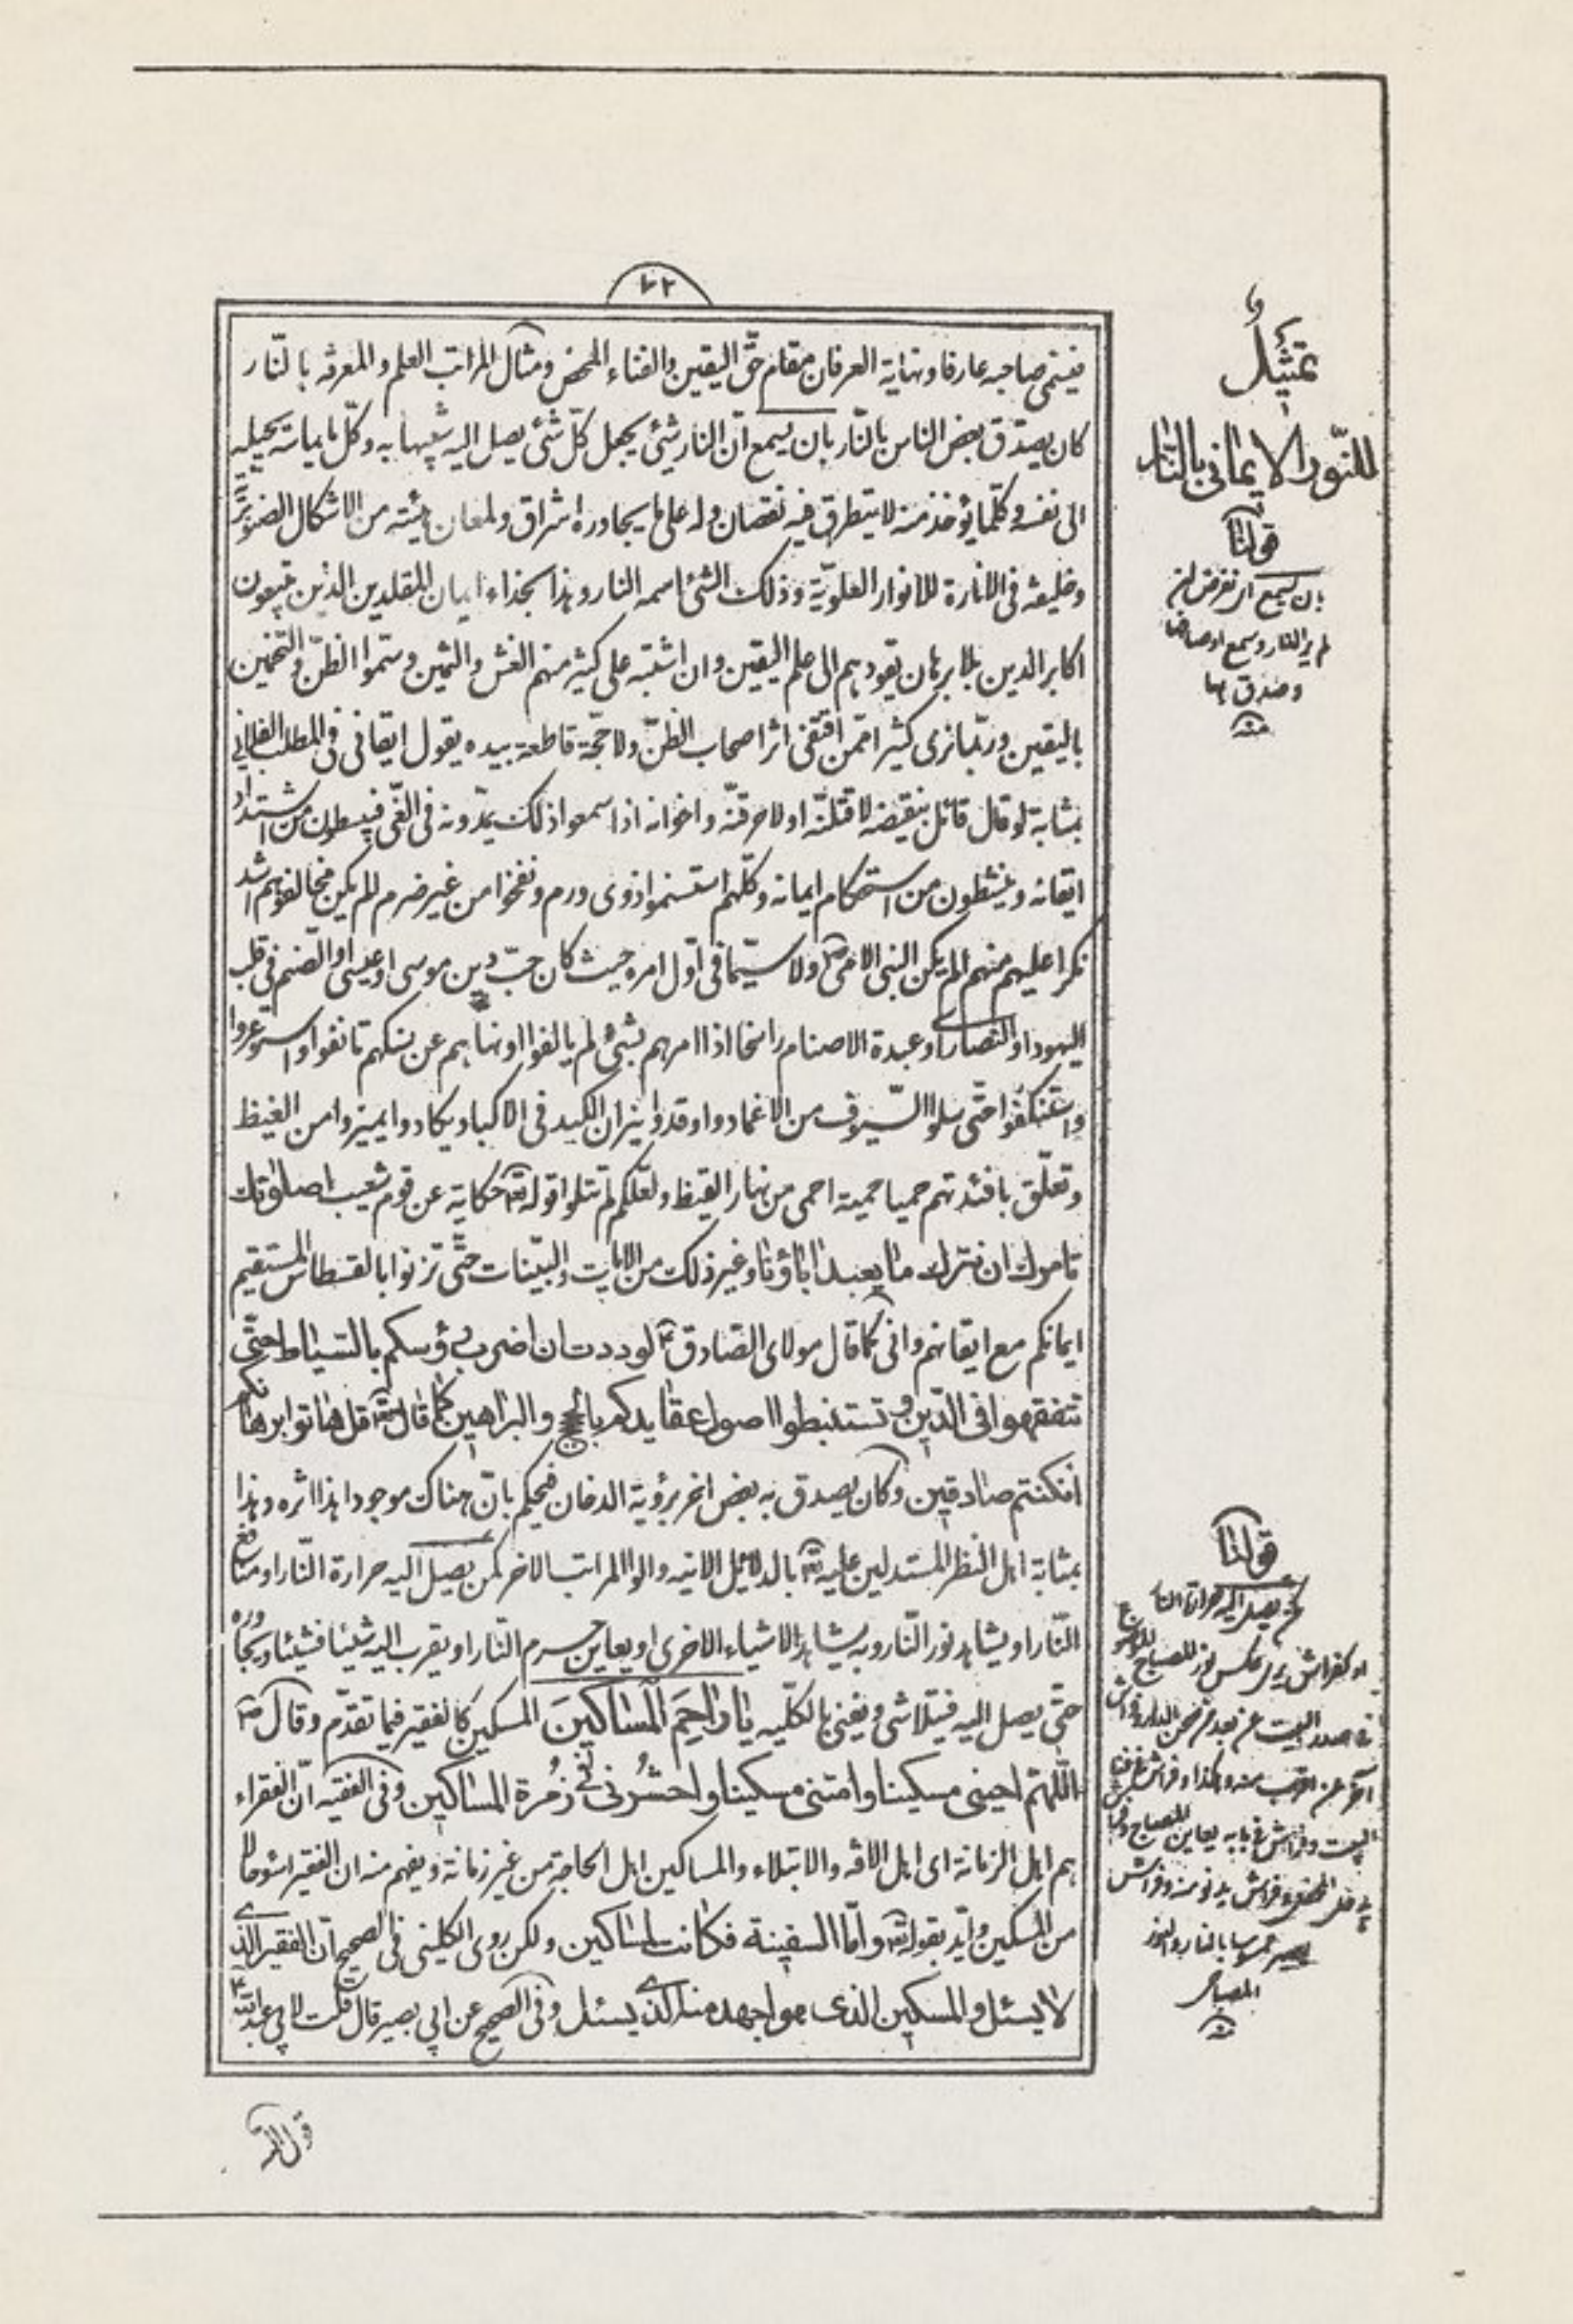 ٦٢
فيسمى صاحبه عارفا ونهاية العرفان مقام حقّ اليقين والفناء المحض ومثال المراتب العلم والمعرفه بالنّار
كان يصدّق بعض الناس بالنّار بان يسمع انّ النار شئ يجعل كلّ شئ يصل اليه شبيها به وكلّ ما يماسّه يحيله
الى نفسه وكلّما يؤخذ منه لا يتطرق فيه نقصان وله على ما يجاوره اشراق ولمعان هيئته من الاشكال الصنوبريّة
وخليفه فى الانارة للانوار العلويّة وذلك الشئ اسمه النار وهذا بحذاء ايمان المقلدين الذين يتبعون
اكابر الدين بلا برهان يقودهم الى علم اليقين وان اشتبه على كثير منهم الغش والثمين وسمّوا الظنّ والتخمين
باليقين وربّما نرى كثيرا ممّن اقتفى اثر اصحاب الظنّ ولا حجّة قاطعة بيده يقول ايقانى فى المطلب الفلانى
بمثابة لو قال قائل بنقيضه لاقتلنّه او لاحرقنّه واخوانه اذا سمعوا ذلك يمدّونه فى الغّى فيبسطون من اشتداد
ايقانه وينشطون من استحكام ايمانه وكلّهم استسنموا ذوى ورم ونفخوا من غير ضرم الم يكن مخالفوهم اشد
نكرا عليهم منهم الم يكن النبى الامى ص ولا سيّما فى اوّل امره حيث كان حبّ دين موسى او عيسى او الصّنم فى قلب
اليهود او النصارى او عبدة الاصنام راسخا اذا امرهم بشئ لم يالفوا او نهاهم عن نسكهم تانفوا واستوعروا
واستنكفوا حتّى سلوا السّيوف من الاغماد واوقدوا نيران الكبد فى الاكباد ويكادوا يميزوا من الغيظ
وتعلّق بافئدتهم حميا حمية احمى من نهار القيظ ولعلّكم لم تتلوا قوله تعالى حكاية عن قوم شعيب اصلوتك
تامرك ان نترك ما يعبد اباؤنا وغير ذلك من الايات والبيّنات حتّى تزنوا بالقسطاس المستقيم
ايمانكم مع ايقانهم وانى كما قال مولاى الصّادق ع لوددت ان اضرب رؤسكم بالسّياط حتّى
تتفقهوا فى الدّين وتستنبطوا اصول عقايدكم بالحجج والبراهين كما قال تعالى قل هاتوا برهانكم
ان كنتم صادقين وكان يصدق به بعض اخر برؤية الدخان فيحكم بانّ هناك موجودا هذا اثره وهذا
بمثابة اهل النظر المستدلين عليه تعالى بالدلايل الانيه والوا المراتب الاخر كمن يصيل اليه حرارة النّار او منافع
النّار او يشاهد نور النّار وبه يشاهد الاشياء الاخرى او يعاين جرم النّار او يقرب اليه شيئا فشيئا ويجاوره
حتّى يصل اليه فيتلاشى ويفنى بالكلّيه يا راحِمَ المَساكينَ المسكين كالفقير فيما تقدّم وقال ص
اللهمّ احينى مسكينا وامتنى مسكينا واحشُرنى فى زُمرة المساكين وفى الفقيه انّ الفقراء
هم اهل الزمانة اى اهل الافه والابتلاء والمساكين اهل الحاجة من غير زمانة ويفهم منه ان الفقير اسوء حالا
من المسكين وايّد بقوله تعالى وامّا السفينة فكانت لمساكين ولكن روى الكلينى فى الصحيح انّ الفقير الذى
لا يسئل والمسكين الذى هو اجهد منه الذى يسئل وفى الصحيح عن ابى بصير قال قلت لابى عبد الله ع
تمثيلٌ
للنّور الايمانى بالنّار
قولنا
بان يسمع اى نفرض انه
لم ير النار وسمع اوصافها
وصدق بها
منه
قولنا
كمن يصيل اليه حرارة النار
او كفراش يرى عكس نور المصباح
فى صدر البيت عن بعد من صحن الدار وفراش
البيت وفراش فى بابه يعاين المصباح
المصباح
منه
قول الله